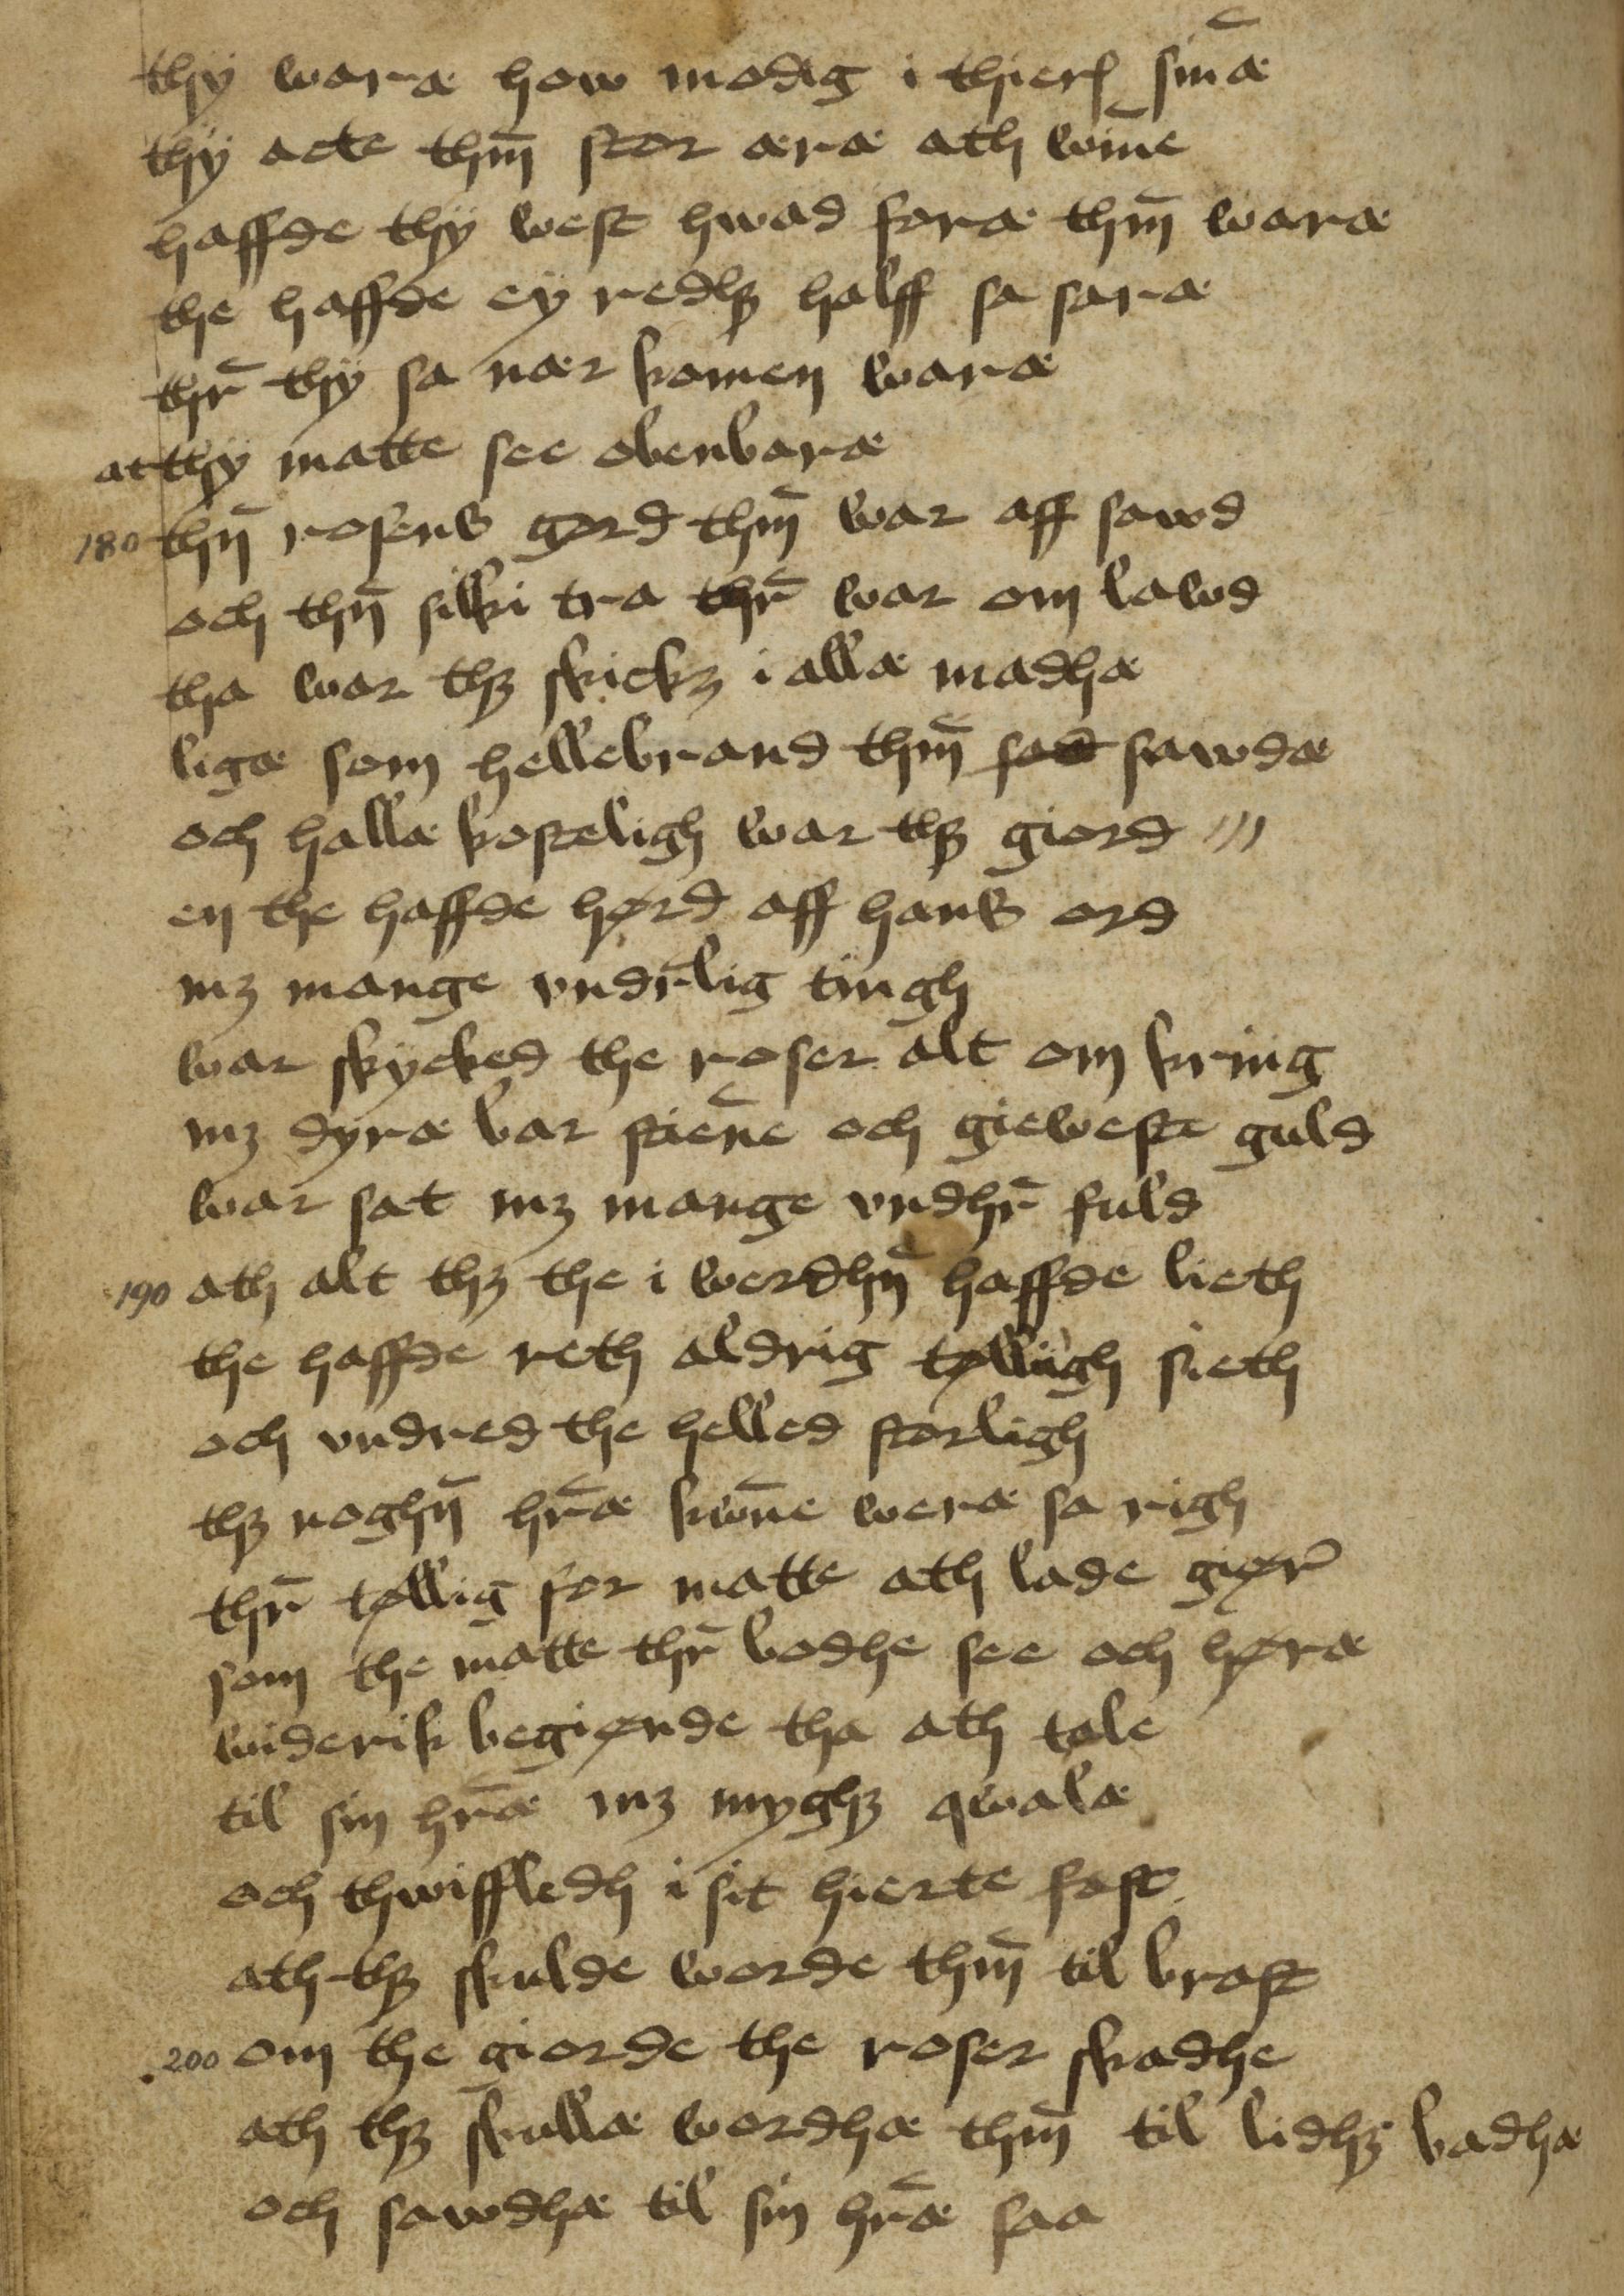 thÿ waræ how modig i thieris sin̄æ
thÿ acte thm̄ stor æræ ath win̄e
haffde thÿ west hwad foræ thm̄ waræ
the haffde eÿ redhꝫ halff sa saræ
thr̄ thÿ sa nær komen waræ
at thÿ matte see obenbaræ
180 thn̄ rosens gord thm̄ war aff sawd
och thn̄ silki tra thr̄ war om lawd
tha war thꝫ skickꝫ i allæ madhæ
ligæ som hellebrand thm̄ sad sawdæ
och hallæ kosteligh war thꝫ giord
en the haffde hørd aff hans ord
mꝫ mange vndr̄lig tingh
war skycked the roser alt om kring
mꝫ dyræ bar stien̄e och gieweste guld
war sat mꝫ mange vndhr̄ fuld
190 ath alt thꝫ the i werdhn̄ haffde lieth
the haffde reth aldrig tølligh sieth
och vndred the helled storligh
thꝫ noghn̄ hr̄æ kwn̄e weræ sa righ
thr̄ tøllig for matte ath lade giør̄
som the matte thr̄ bodhe see och høræ
widerik begiønde tha ath tale
til sin hr̄æ mꝫ myghꝫ qwalæ
och thwiffledh i sit hierte fast
ath thꝫ skulde worde thm̄ til brast
200 om the giorde the roser skadhe
ath thꝫ skullæ wordhæ thm̄ til lidhꝫ badhæ
och sawdhæ til sin hr̄æ saa